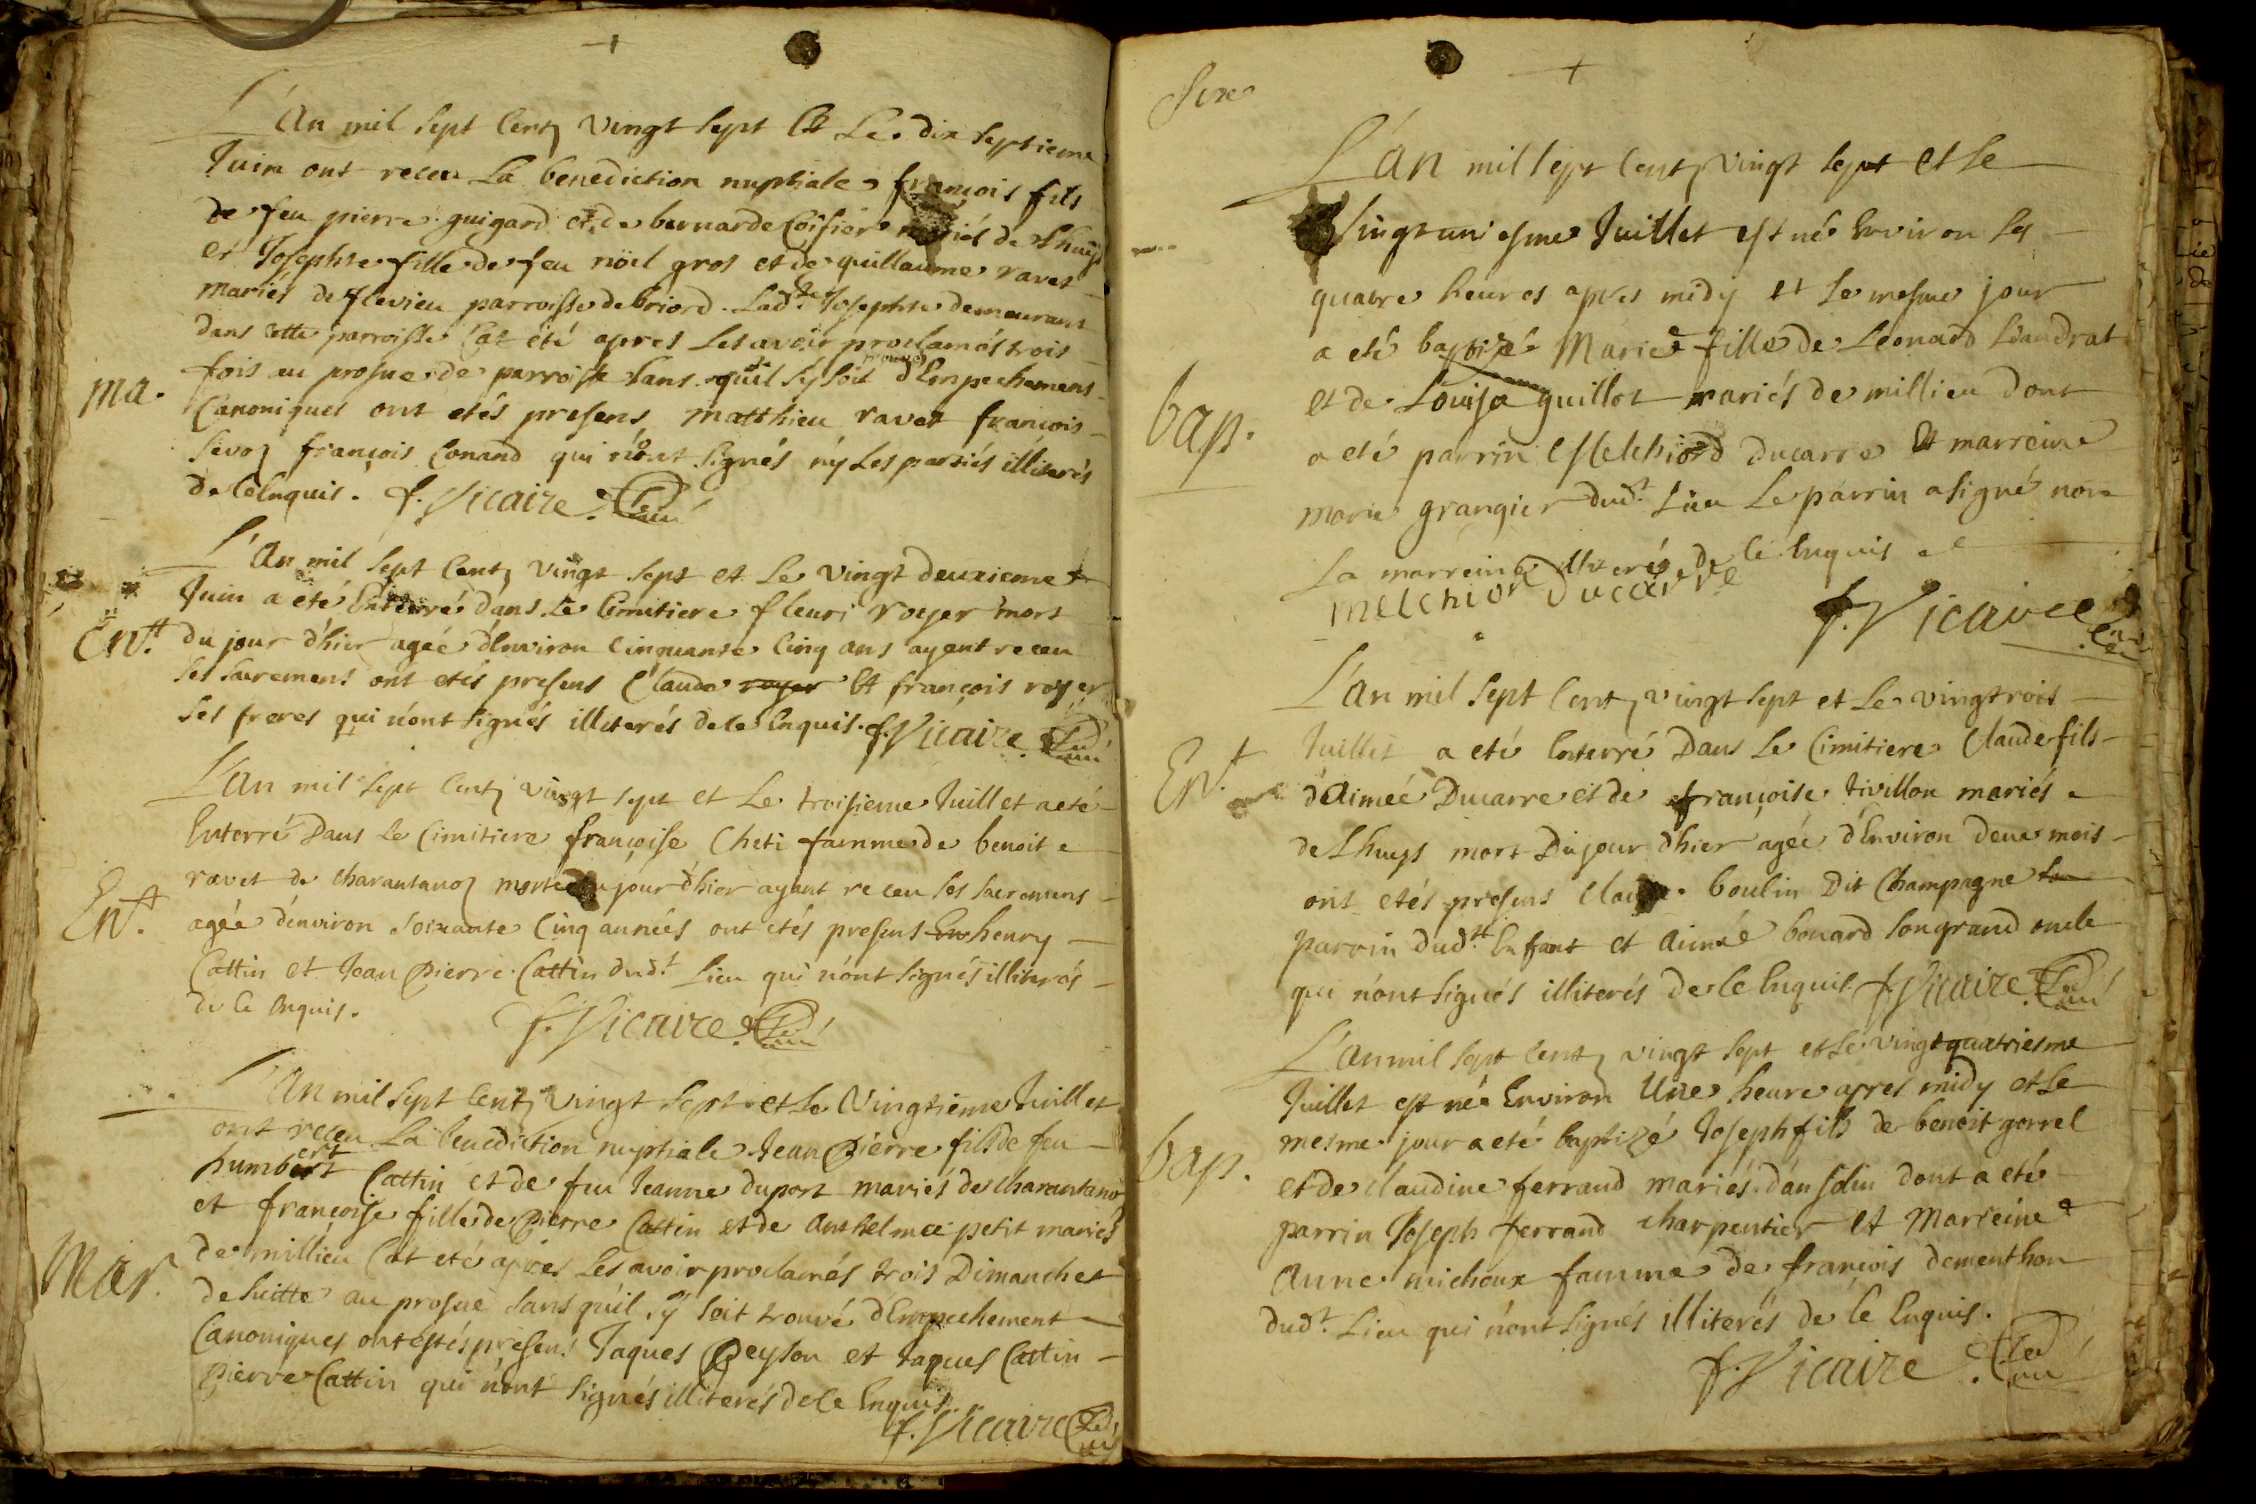 L'An mil sept Cent vingt sept Et Le dix septieme
Juin ont receu La benediction nuptiale françois fils
de feu pierre guigard et de bernarde Coisier mariés de Lhuys
et Josephte fille de feu noël gros et de guillaume ravet
mariés de flevieu parroisse de briord. Lad.te Josephte demeurant
dans cette parroisse Cat été apres Les avoir proclamés trois
fois au prosne de parroisse sans quil sy soit trouvé d'Empechemens
ma.
Canoniques ont etés presens matthieu ravet françois
sevoz françois Conand qui n'ont signés ny Les partiés illiterés
de Ce Enquis. f. Vicaire Curé
L'An mil sept Cent vingt sept et Le vingt deuxieme
Juin a eté Enterré dans Le Cimitiere fleuri royer mort
Ent.
du jour d'hier agéé d'Environ Cinquante Cinq ans ayant receu
ses sacremens ont etés presens Claude royer Et françois royer
ses freres qui n'ont signés illiterés de ce Enquis. f. Vicaire Curé
L'An mil sept Cent vingt sept et Le troisieme Juillet a eté
Enterré Dans Le Cimitiere françoise Cheti famme de benoit
ravet de Charantanoz morte du jour d'hier ayant receu ses sacremens
Ent.
agéé d'environ soixante Cinq années ont etés presens En henry
Cattin et Jean Pierre Cattin dud.t Lieu qui n'ont signés illiterés
de Ce Enquis. f. Vicaire Curé
L'An mil sept Cent vingt sept et Le Vingtieme Juillet
ont receu La benediction nuptiale Jean Pierre fils de feu
humbert Cattin et de feu Jeanne duport mariés de Charantanoz
et françoise fille de Pierre Cattin et de Anthelmee petit mariés
Mar.
de millieu Cat eté apres Les avoir proclamés trois Dimanches
de suitte au prosne sans qu'il sy soit trouvé d'Empechement
Canoniques ont estés presens Jaques Peyson et Jaques Cattin
Pierre Cattin qui n'ont signés illiterés de ce Enquis.
f. Vicaire Curé
L'An mil sept Cent vingt sept et Le
Vingtuniesme Juillet est né Environ Les
quatre heures apres midy et Le mesme jour
a eté baptizé Marie fille de Léonard Liandrat
et de Louise guillot mariés de millieu dont
bap.
a eté parrin Melchiord Ducarre Et marreine
marie grangier dud.t Lieu Le parrin a signé non
La marreine illiterée de Ce Enquis
melchior Ducarre
f. Vicaire Curé
L'An mil sept Cent vingt sept et Le vingtrois
Juillet a eté Enterré Dans Le Cimitiere Claude fils
Ent.
d'Aimeé Ducarre et de françoise tivillon mariés
de Lhuys mort Du jour d'hier agéé d'Environ deux mois
ont etés presens Claude boulin Dit Champagne
parrin dud.t Enfant et Aimée bonard son grand oncle
qui n'ont signés illiterés de Ce Enquis. f. Vicaire Curé
L'An mil sept Cent vingt sept et Le vingtquatriesme
Juillet est né Environ Une heure apres midy et Le
mesme jour a eté baptizé Joseph fils de benoit gorrel
bap.
et de Claudine ferrand mariés d'ansolin dont a eté
parrin Joseph ferrand Charpentier et Marreine
Anne michoux famme de françois dementhon
dud.t Lieu qui n'ont signés illiterés de Ce Enquis.
f. Vicaire Curé